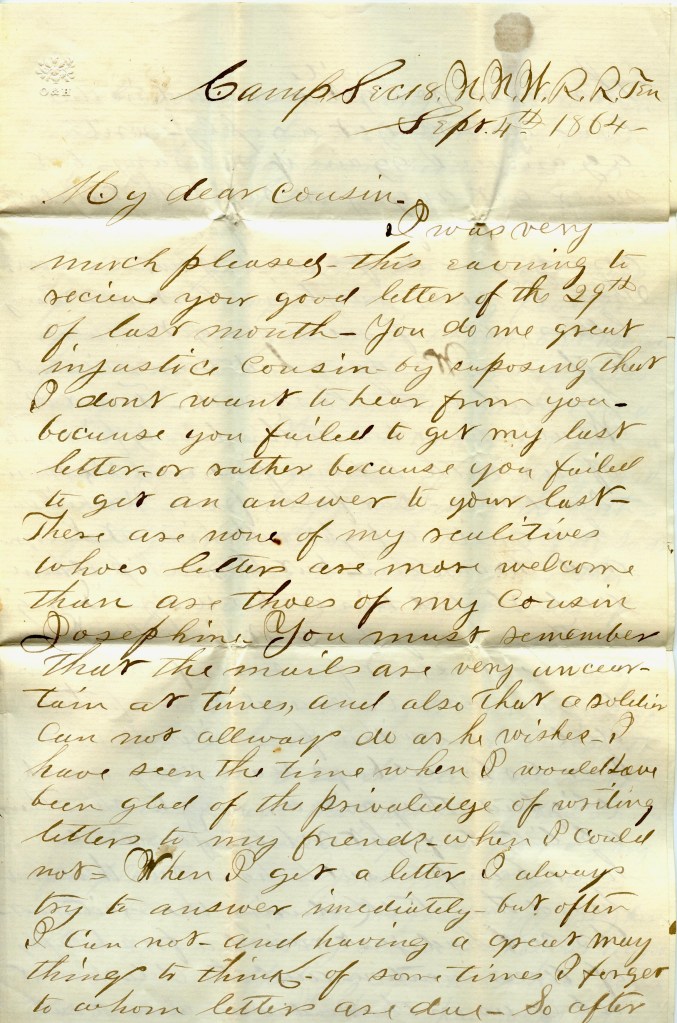 Camp Sec 18. N. N. W. R. R. Ten
Sept. 4th 1864-
My dear Cousin-
I was very
much pleased- this evening to
recieve your good letter of the 29th
of last month- You do me great
injustice Cousin- by suposing that
I dont want to hear from you-
because you failed to get my last
letter. or rather because you failed
to get an answer to your last-
There are none of my realitives
whoes letters are more welcome
than are thoes of my Cousin
Josephine- You must remember
that the mails are very uncear-
tain at times, and also that a soldier
Can not allways do as he wishes- I
have seen the time when I would have
been glad of the privaledge of writing
letters to my friends- when I could
not= When I get a letter I always
try to answer imediately- but often
I Can not- and having a great may
thing to think- of sometimes I forget
to whom letters are due- So after